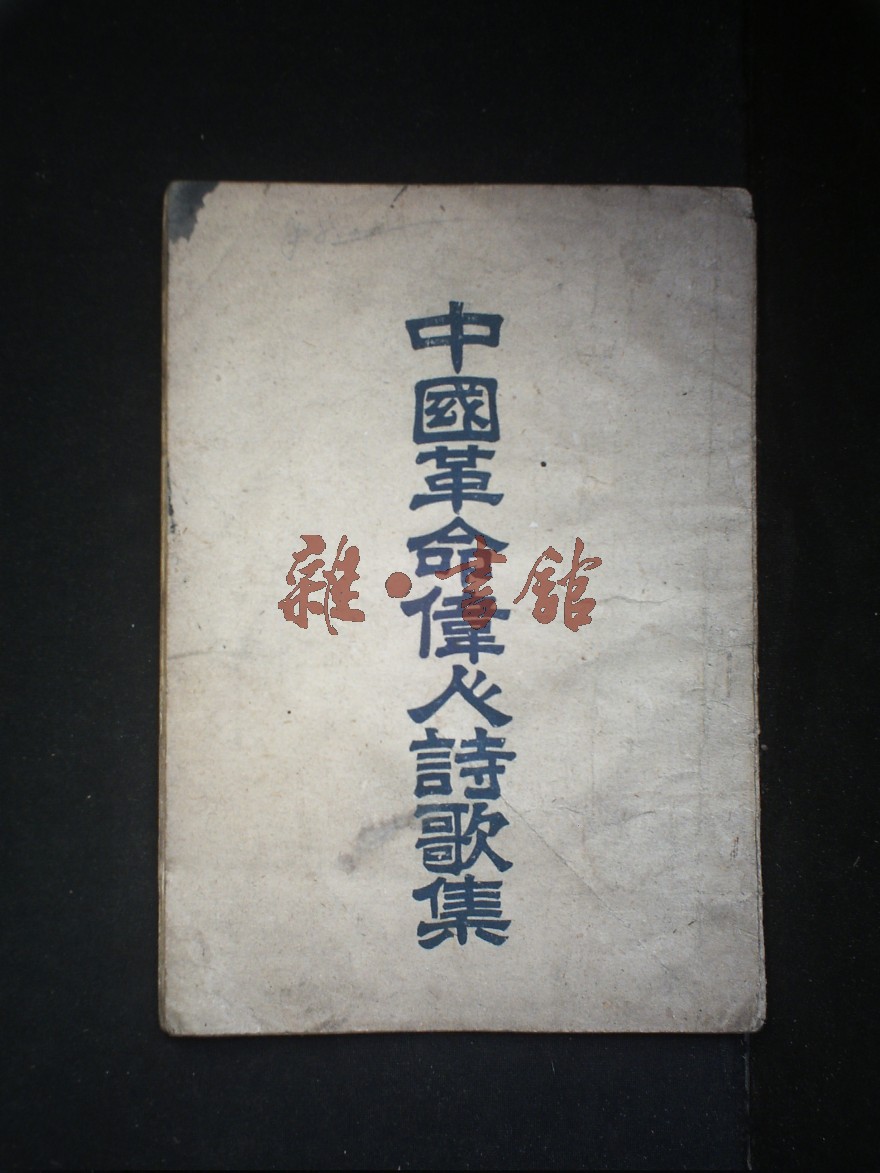 中國革命偉人詩歌集
雜·書館